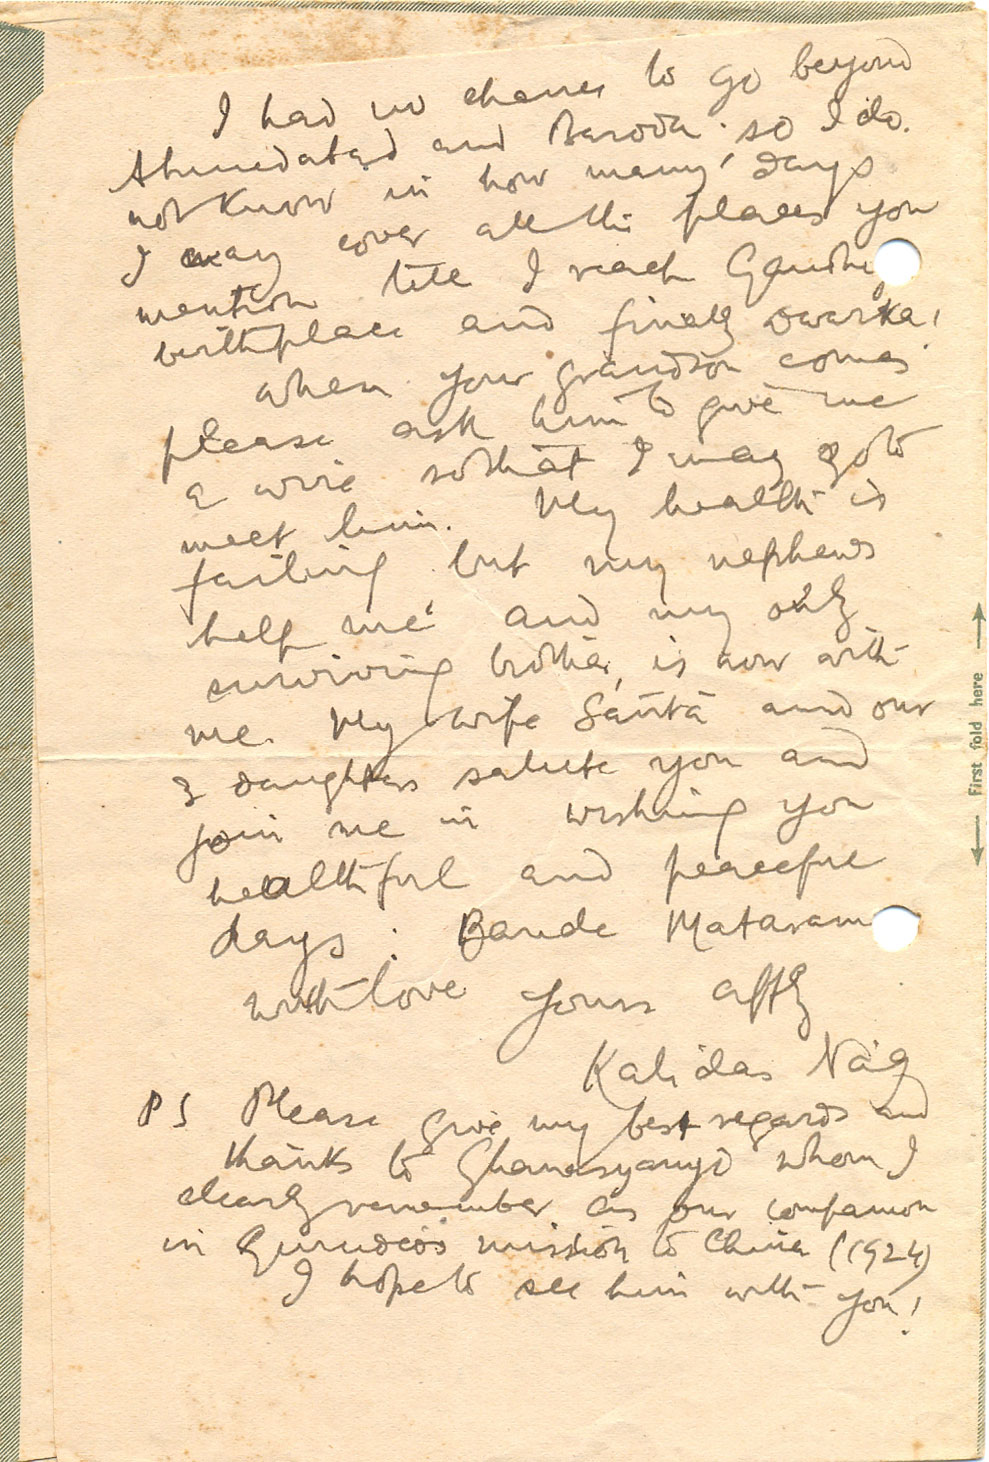 I had no chance to go beyond
Ahmedabad and Baroda. so I do.
not know in how many days
I may cover all the places you
mention till I reach Gandhi
birthplace and finally Dwarka!
When your grandson comes
please ask him to give me
a wire so that I may go to
meet him. My health is
failing but my nephews
help me and my only
surviving brother, is now with
me. My wife Sāntā and our
3 daughters salute you and
join me in wishing you
healthful and peaceful
days : Bande Mataram
with love Yours affly
Kalidas Nāg
PS Please give my best regards and
thanks to Ghanasyamji whom I
clearly remember as our companion
in Gurudev's mission to China (1924)
I hope to see him with you!
← First fold here →